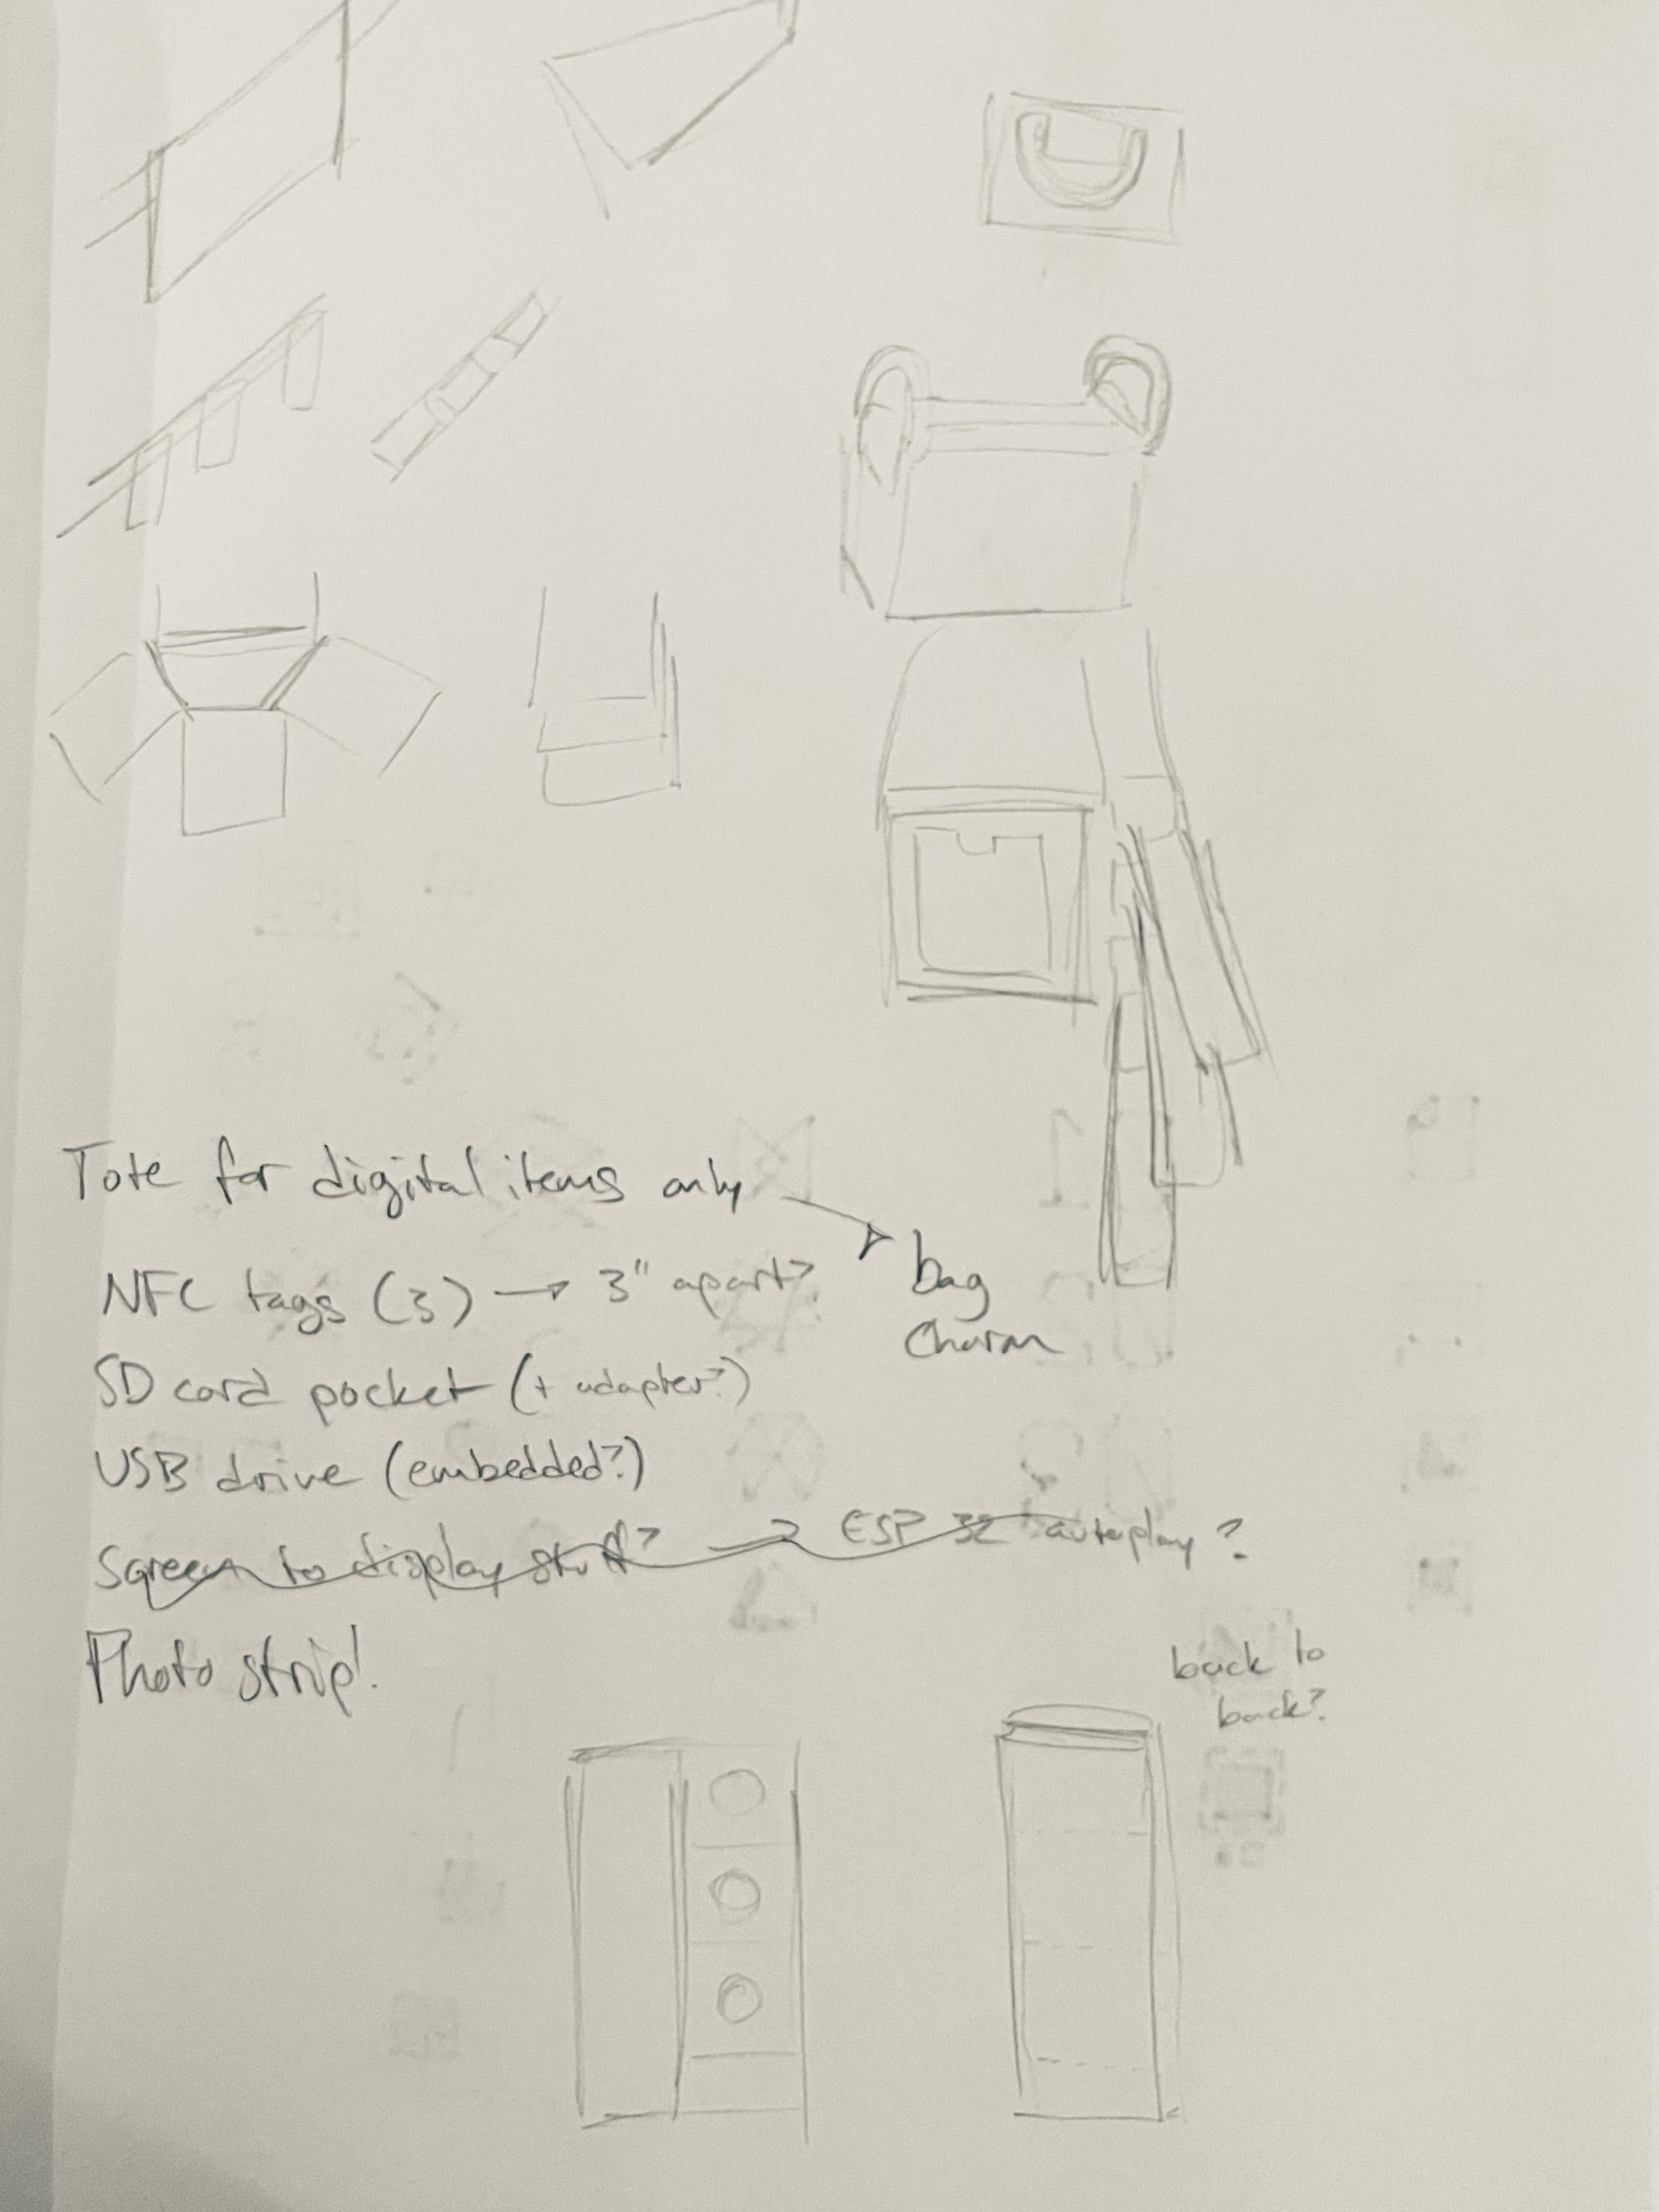 Tote for digital items only
bag
charm
NFC tags (3) → 3" apart?
SD card pocket (+ adapter?)
USB drive (embedded?)
Screen to display stuff? → ESP 32 autoplay?
Photo strip!
back to
back?